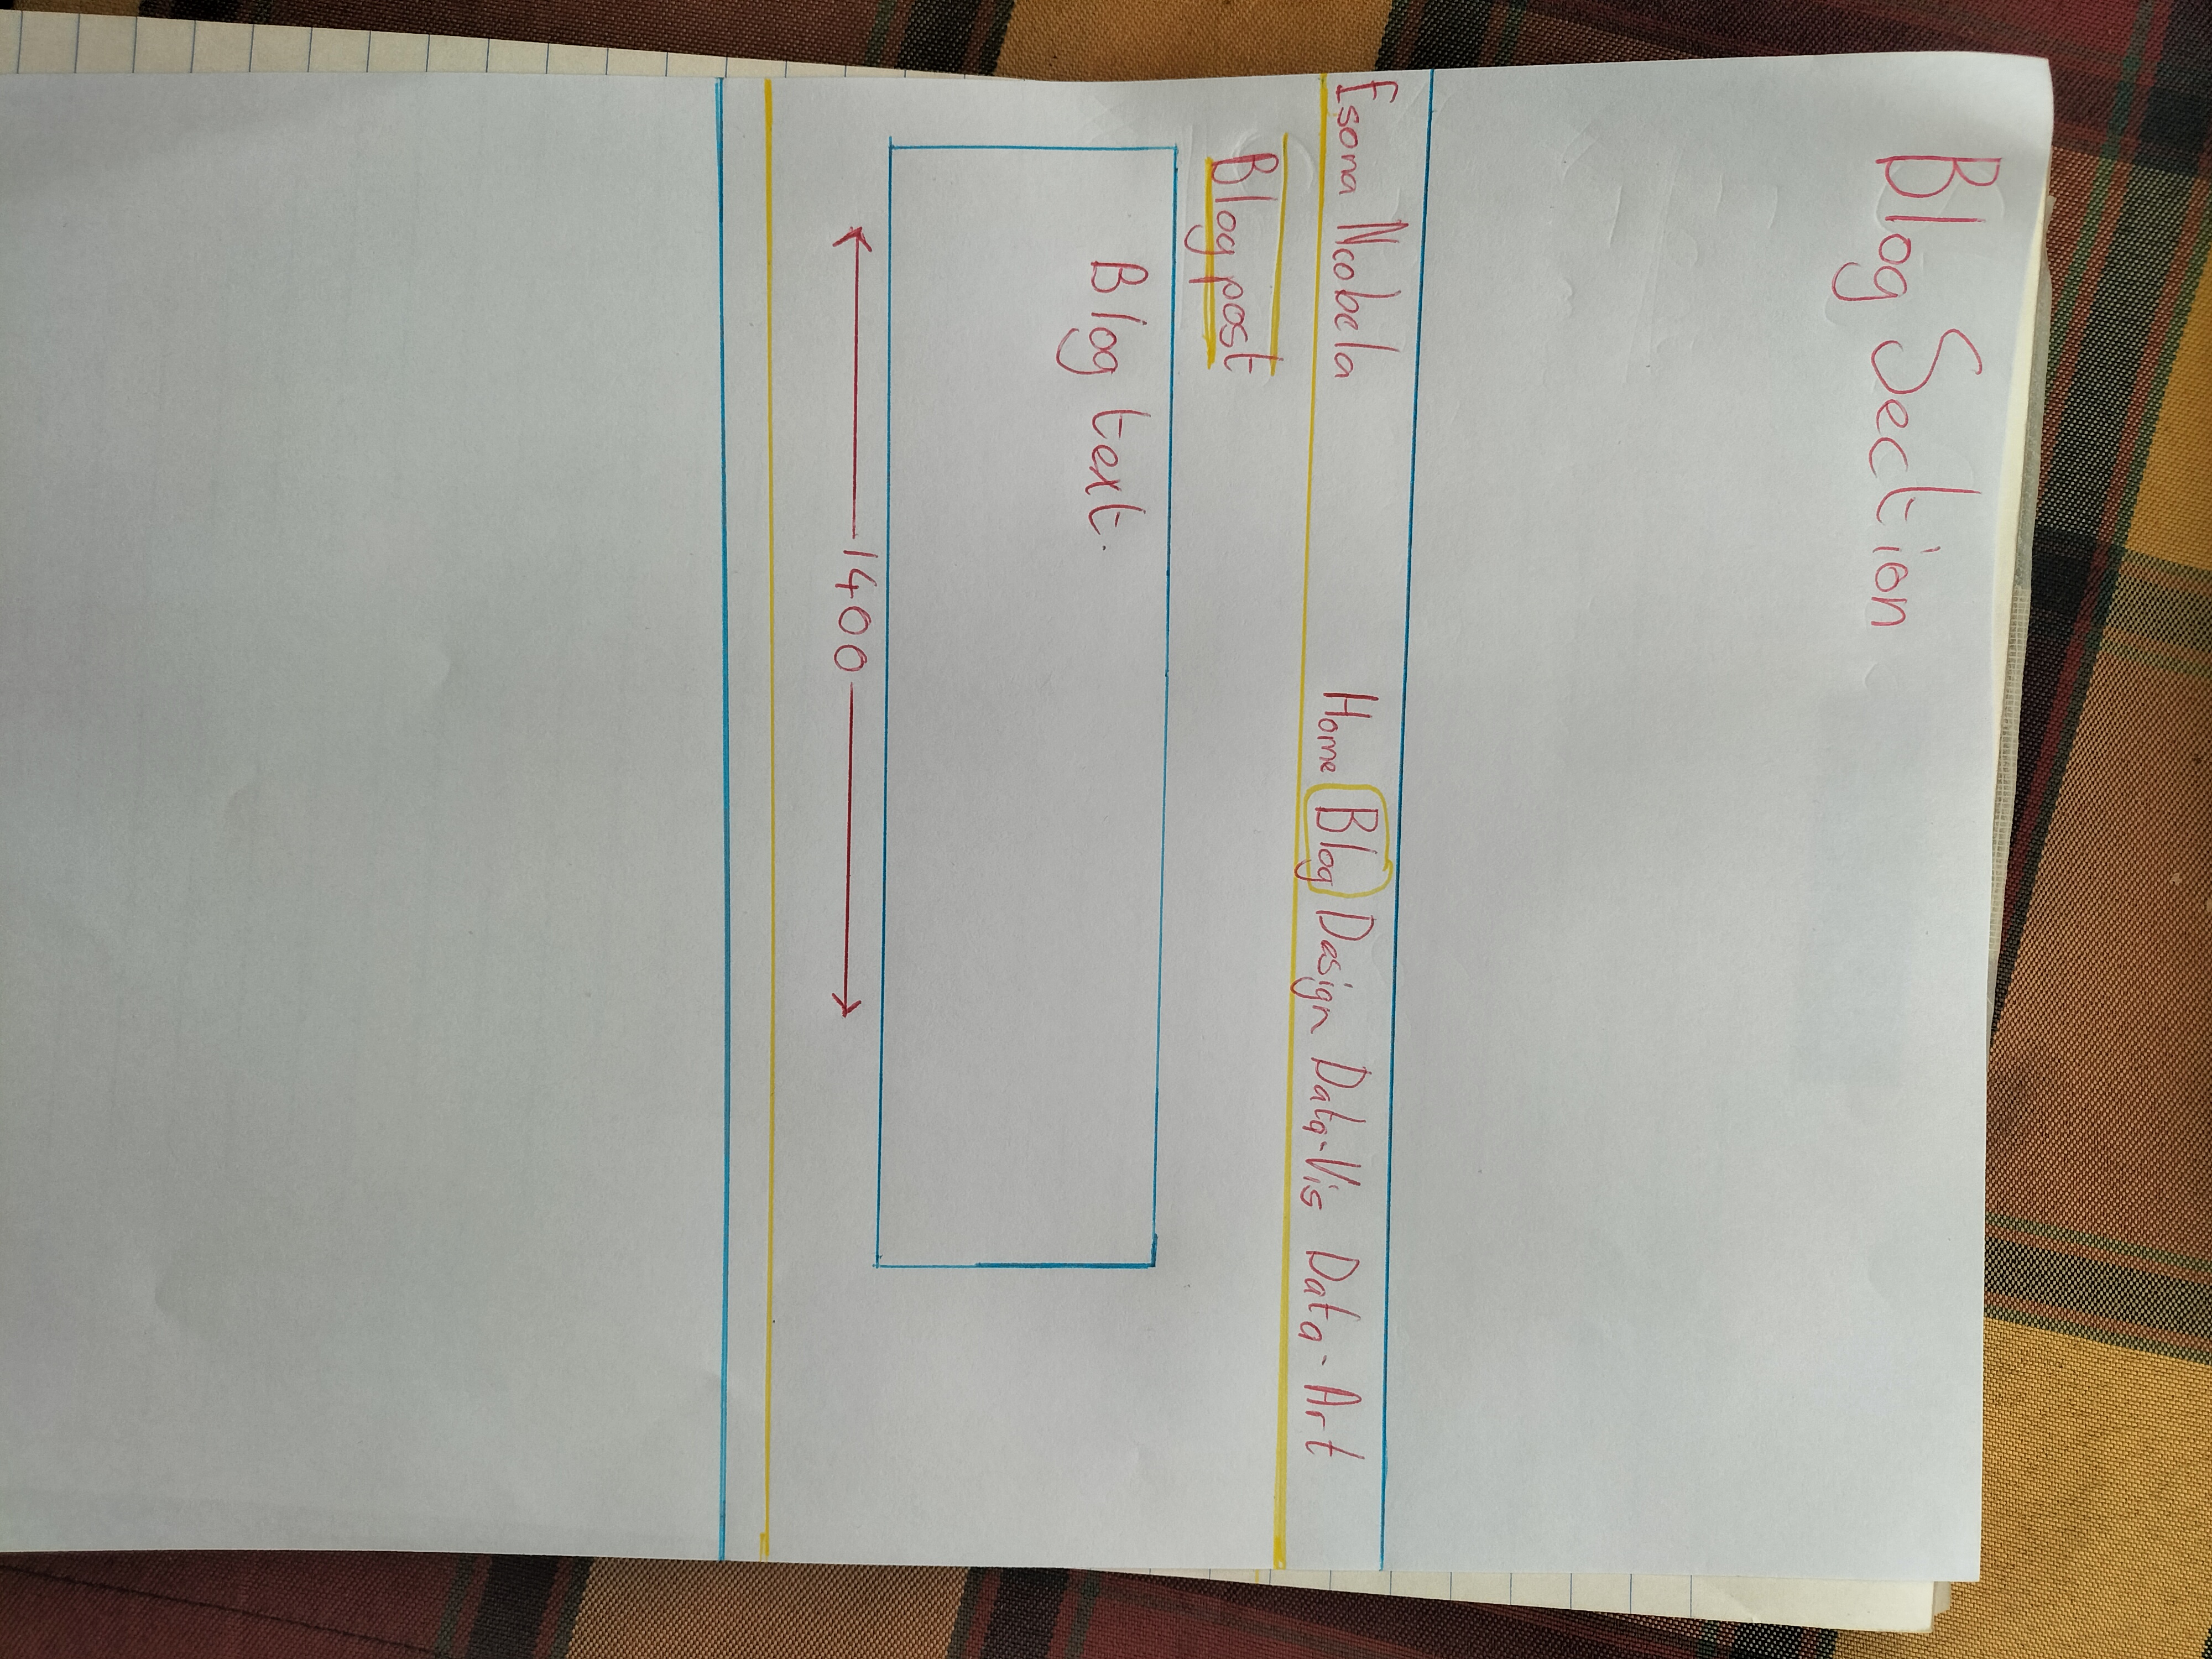 Blog Section
Esona Ncobela Home Blog Design Data-Vis Data-Art
Blog post
Blog text.
1400